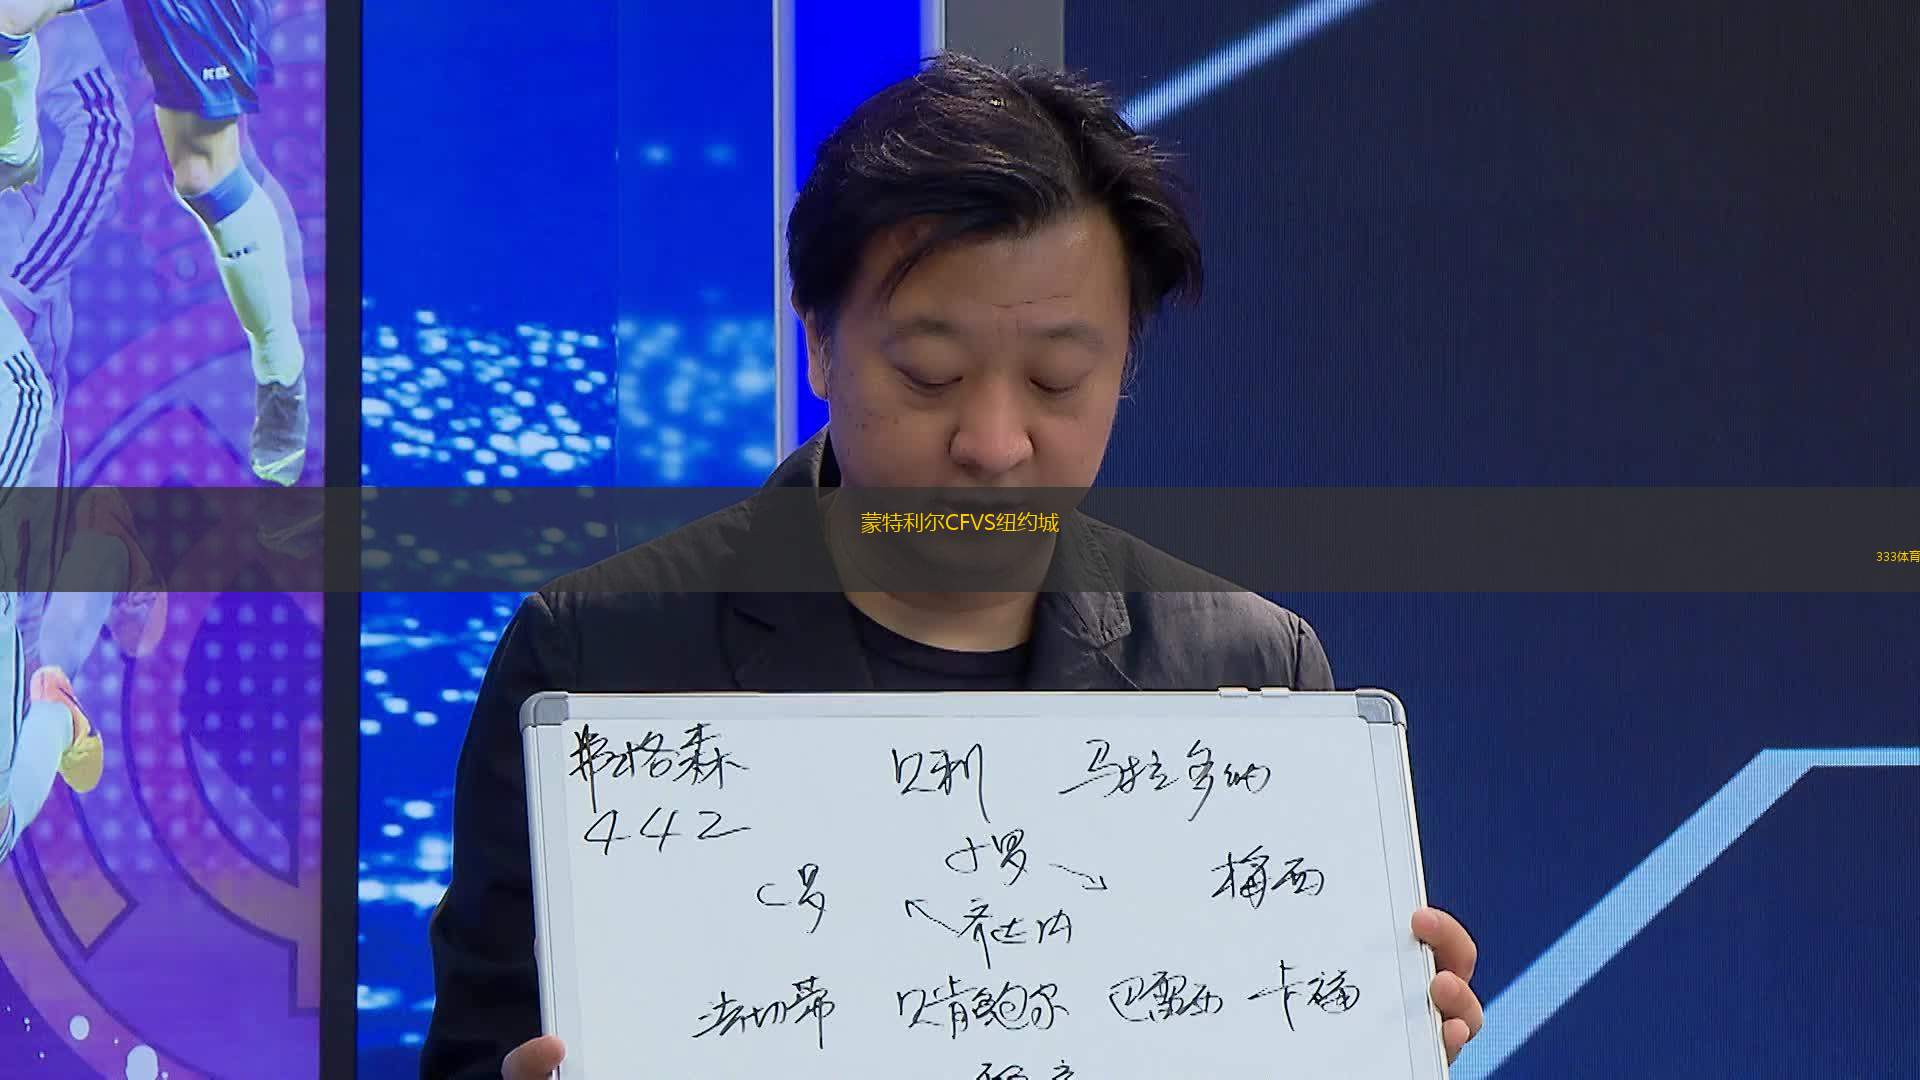 蒙特利尔CFVS纽约城
333体育
弗格森 贝利 马拉多纳
442
小罗
C罗 梅西
齐达内
法切蒂 贝肯鲍尔 巴雷西 卡福